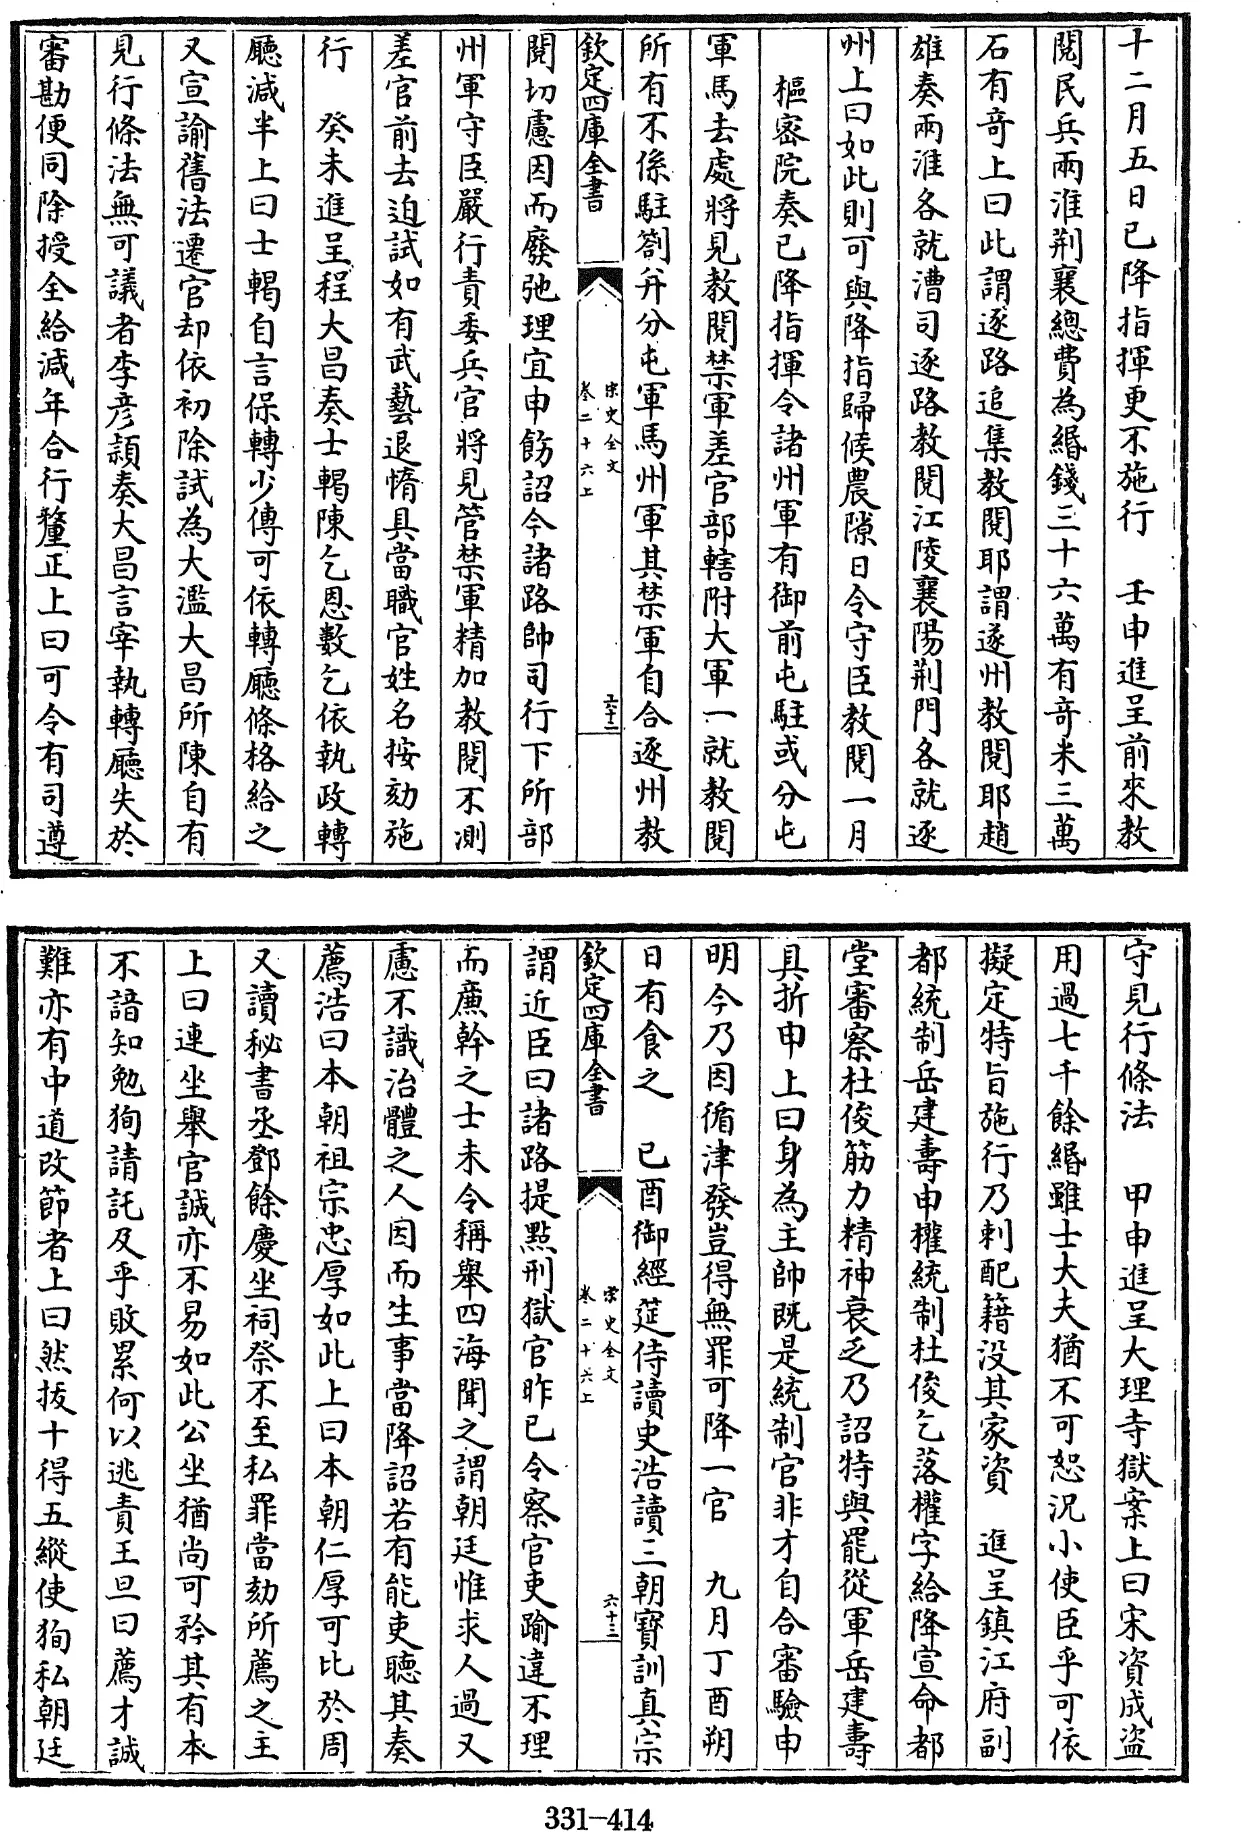 十二月五日已降指揮更不施行　壬申進呈前來教
閱民兵兩淮荆襄總費為緡錢三十六萬有奇米三萬
石有奇上曰此謂逐路追集教閱耶謂逐州教閱耶趙
雄奏兩淮各就漕司逐路教閱江陵襄陽荆門各就逐
州上曰如此則可與降指歸候農隙日令守臣教閱一月
樞密院奏已降指揮令諸州軍有御前屯駐或分屯
軍馬去處將見教閱禁軍差官部轄附大軍一就教閱
所有不係駐劄并分屯軍馬州軍其禁軍自合逐州教
欽定四庫全書
宋史全文
卷二十六上
六十二
閱切慮因而廢弛理宜申飭詔今諸路帥司行下所部
州軍守臣嚴行責委兵官將見管禁軍精加教閱不測
差官前去迫試如有武藝退惰具當職官姓名按劾施
行　癸未進呈程大昌奏士輵陳乞恩數乞依執政轉
廳減半上曰士輵自言保轉少傅可依轉廳條格給之
又宣諭舊法遷官却依初除試為大濫大昌所陳自有
見行條法無可議者李彥頴奏大昌言宰執轉廳失於
審勘便同除授全給減年合行釐正上曰可令有司遵
守見行條法　甲申進呈大理寺獄案上曰宋資成盜
用過七千餘緡雖士大夫猶不可恕況小使臣乎可依
擬定特旨施行乃刺配籍没其家資　進呈鎮江府副
都統制岳建壽申權統制杜俊乞落權字給降宣命都
堂審察杜俊筋力精神衰乏乃詔特與罷從軍岳建壽
具折申上曰身為主帥既是統制官非才自合審驗申
明今乃因循津發豈得無罪可降一官　九月丁酉朔
日有食之　已酉御經筵侍讀史浩讀三朝寶訓真宗
欽定四庫全書
宋史全文
卷二十六上
六十三
謂近臣曰諸路提點刑獄官昨已令察官吏踰違不理
而廉幹之士未令稱舉四海聞之謂朝廷惟求人過又
慮不識治體之人因而生事當降詔若有能吏聽其奏
薦浩曰本朝祖宗忠厚如此上曰本朝仁厚可比於周
又讀秘書丞鄧餘慶坐祠祭不至私罪當劾所薦之主
上曰連坐舉官誠亦不易如此公坐猶尚可矜其有本
不諳知勉狥請託及乎敗累何以逃責王旦曰薦才誠
難亦有中道改節者上曰然拔十得五縱使狥私朝廷
331-414